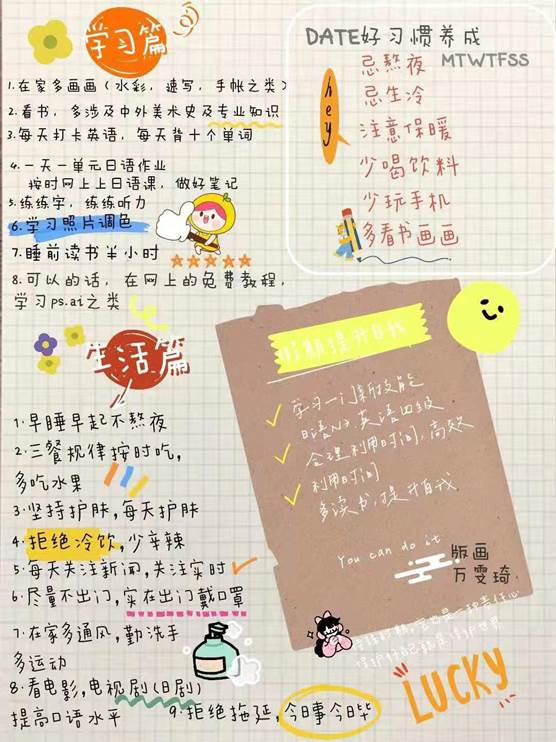 学习篇
1.在家多画画（水彩，速写，手帐之类）
2.看书，多涉及中外美术史及专业知识
3.每天打卡英语，每天背十个单词
4.一天一单元日语作业
按时网上上日语课，做好笔记
5.练练字，练练听力
6.学习照片调色
7.睡前读书半小时
8.可以的话，在网上的免费教程，
学习ps.ai之类
DATE好习惯养成
MTWTFSS
hey
忌熬夜
忌生冷
注意保暖
少喝饮料
少玩手机
多看书画画
生活篇
1.早睡早起不熬夜
2.三餐规律按时吃，
多吃水果
3.坚持护肤，每天护肤
4.拒绝冷饮，少辛辣
5.每天关注新闻，关注实时
6.尽量不出门，实在出门戴口罩
7.在家多通风，勤洗手
多运动
8.看电影，电视剧(日剧)
提高口语水平
9.拒绝拖延，今日事今日毕
假期提升自我
学习一门新技能
日语N2 英语四级
合理利用时间，高效
利用时间
多读书，提升自我
You can do it
版画
万雯琦
LUCKY